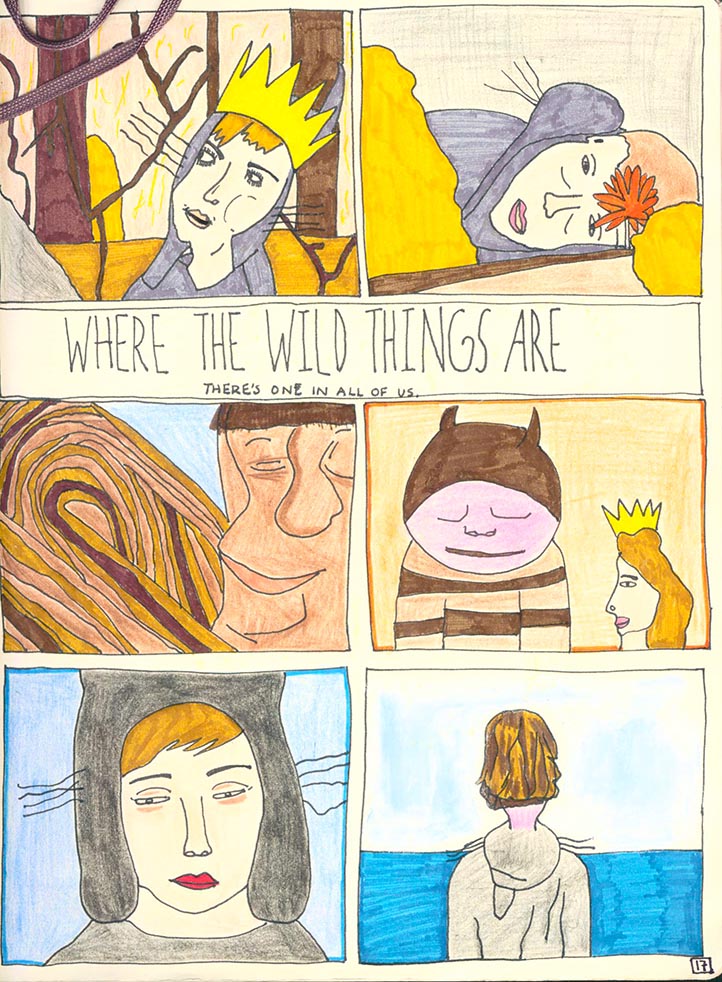 WHERE THE WILD THINGS ARE
THERE'S ONE IN ALL OF US.
17